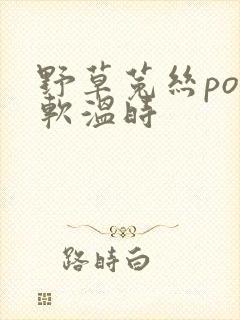 野草菟絲po
軟溫時
路時白